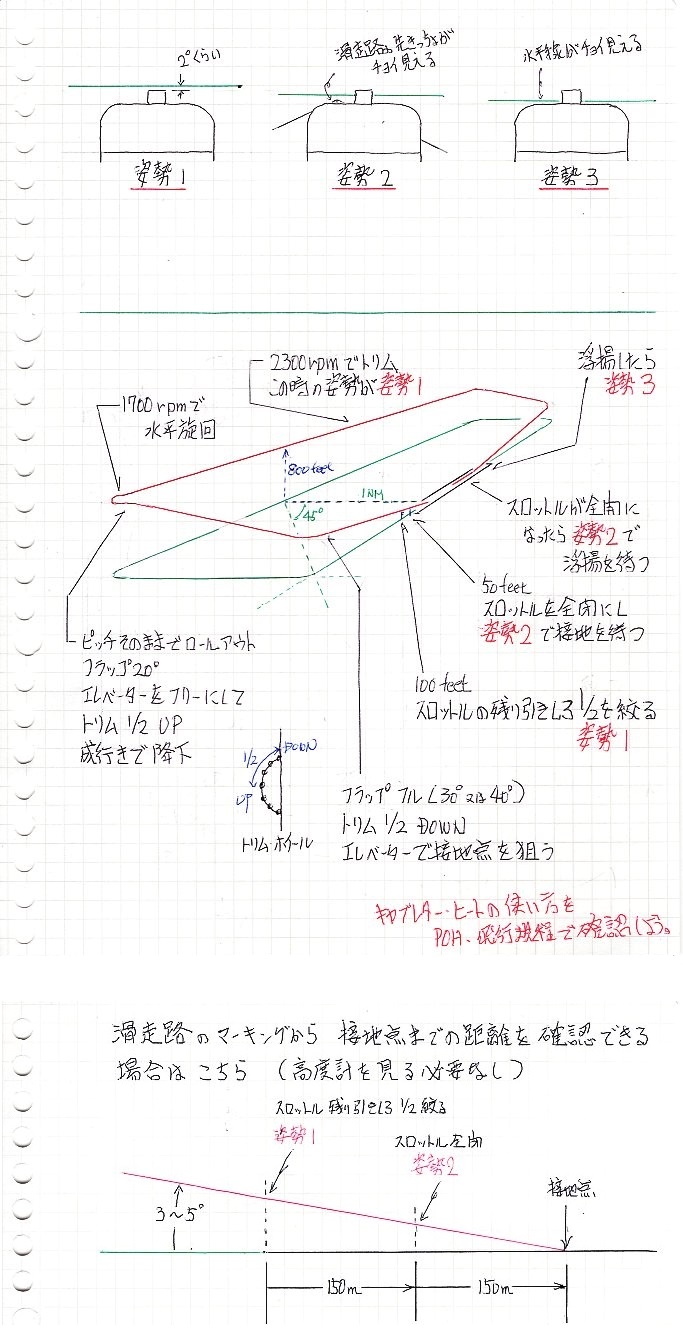 2°くらい
滑走路の先きっちょが
チョイ見える
水平線がチョイ見える
姿勢1
姿勢2
姿勢3
2300rpmでトリム
この時の姿勢が姿勢1
浮揚したら
姿勢3
1700rpmで
水平旋回
800feet
1NM
45°
スロットルが全開に
なったら姿勢2で
浮揚を待つ
50feet
スロットルを全閉にし
姿勢2で接地を待つ
ピッチそのままでロールアウト
フラップ20°
エレベーターをフリーにして
トリム1/2 UP
成行きで降下
100feet
スロットルの残り引きしろ1/2を絞る
姿勢1
1/2
DOWN
UP
トリムホイール
フラップ フル(30°又は40°)
トリム1/2 DOWN
エレベーターで接地点を狙う
キャブレター・ヒートの使い方を
POH、飛行規程で確認しよう。
滑走路のマーキングから 接地点までの距離を確認できる
場合はこちら (高度計を見る必要なし)
スロットル残り引きしろ1/2絞る
姿勢1
スロットル全閉
姿勢2
接地点
3~5°
150m
150m